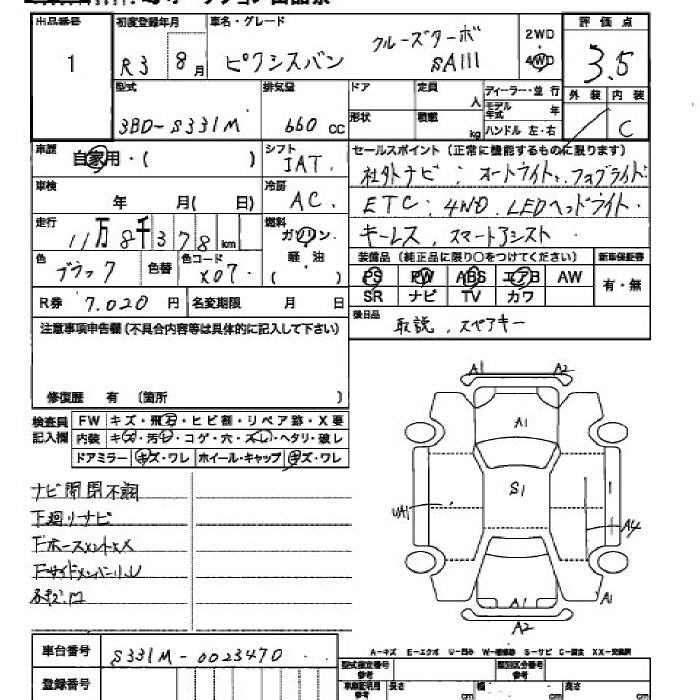 出品番号 初度登録年月 車名・グレード 2WD 評価点
1 R3 8月 ピクシスバン クルーズターボ SAIII 4WD 3.5
型式 排気量 ドア 定員 人 ディーラー・並行 外装 内装
3BD-S331M 660cc 形状 積載 kg モデル年式 年 ハンドル 左・右 C
車歴 自家用・( ) シフト IAT. セールスポイント(正常に機能するものに限ります)
社外ナビ. オートライト. フォグライト.
車検 年 月( 日) 冷房 AC. ETC. 4WD. LEDヘッドライト.
走行 11万8千378km 燃料 ガソリン キーレス. スマートアシスト
色 ブラック 色替 色コード X07. 軽・油 ( 装備品(純正品に限り○をつけてください) 新車保証書
PS PW ABS エアB AW 有・無
R券 7.020円 名変期限 月 日 SR ナビ TV カワ
注意事項申告欄(不具合内容等は具体的に記入して下さい) 後日品 取説. スペアキー
修復歴 有 (箇所 )
検査員記入欄 FW キズ・飛石・ヒビ割・リペア跡・X要
内装 キズ・汚レ・コゲ・穴・スレ・ヘタリ・破レ
ドアミラー キズ・ワレ ホイール・キャップ キズ・ワレ
ナビ開閉不調
下廻りサビ
A1 A2
A1
S1
UA1
A4
A1 A1
A2
A-キズ E-エクボ U-凹み W-補修跡 S-サビ C-腐食 XX-交換済
車台番号 S331M-0023470
型式指定番号 参考 類別区分番号 参考
登録番号 車庫証明用 参考 長さ cm 幅 cm 高さ cm